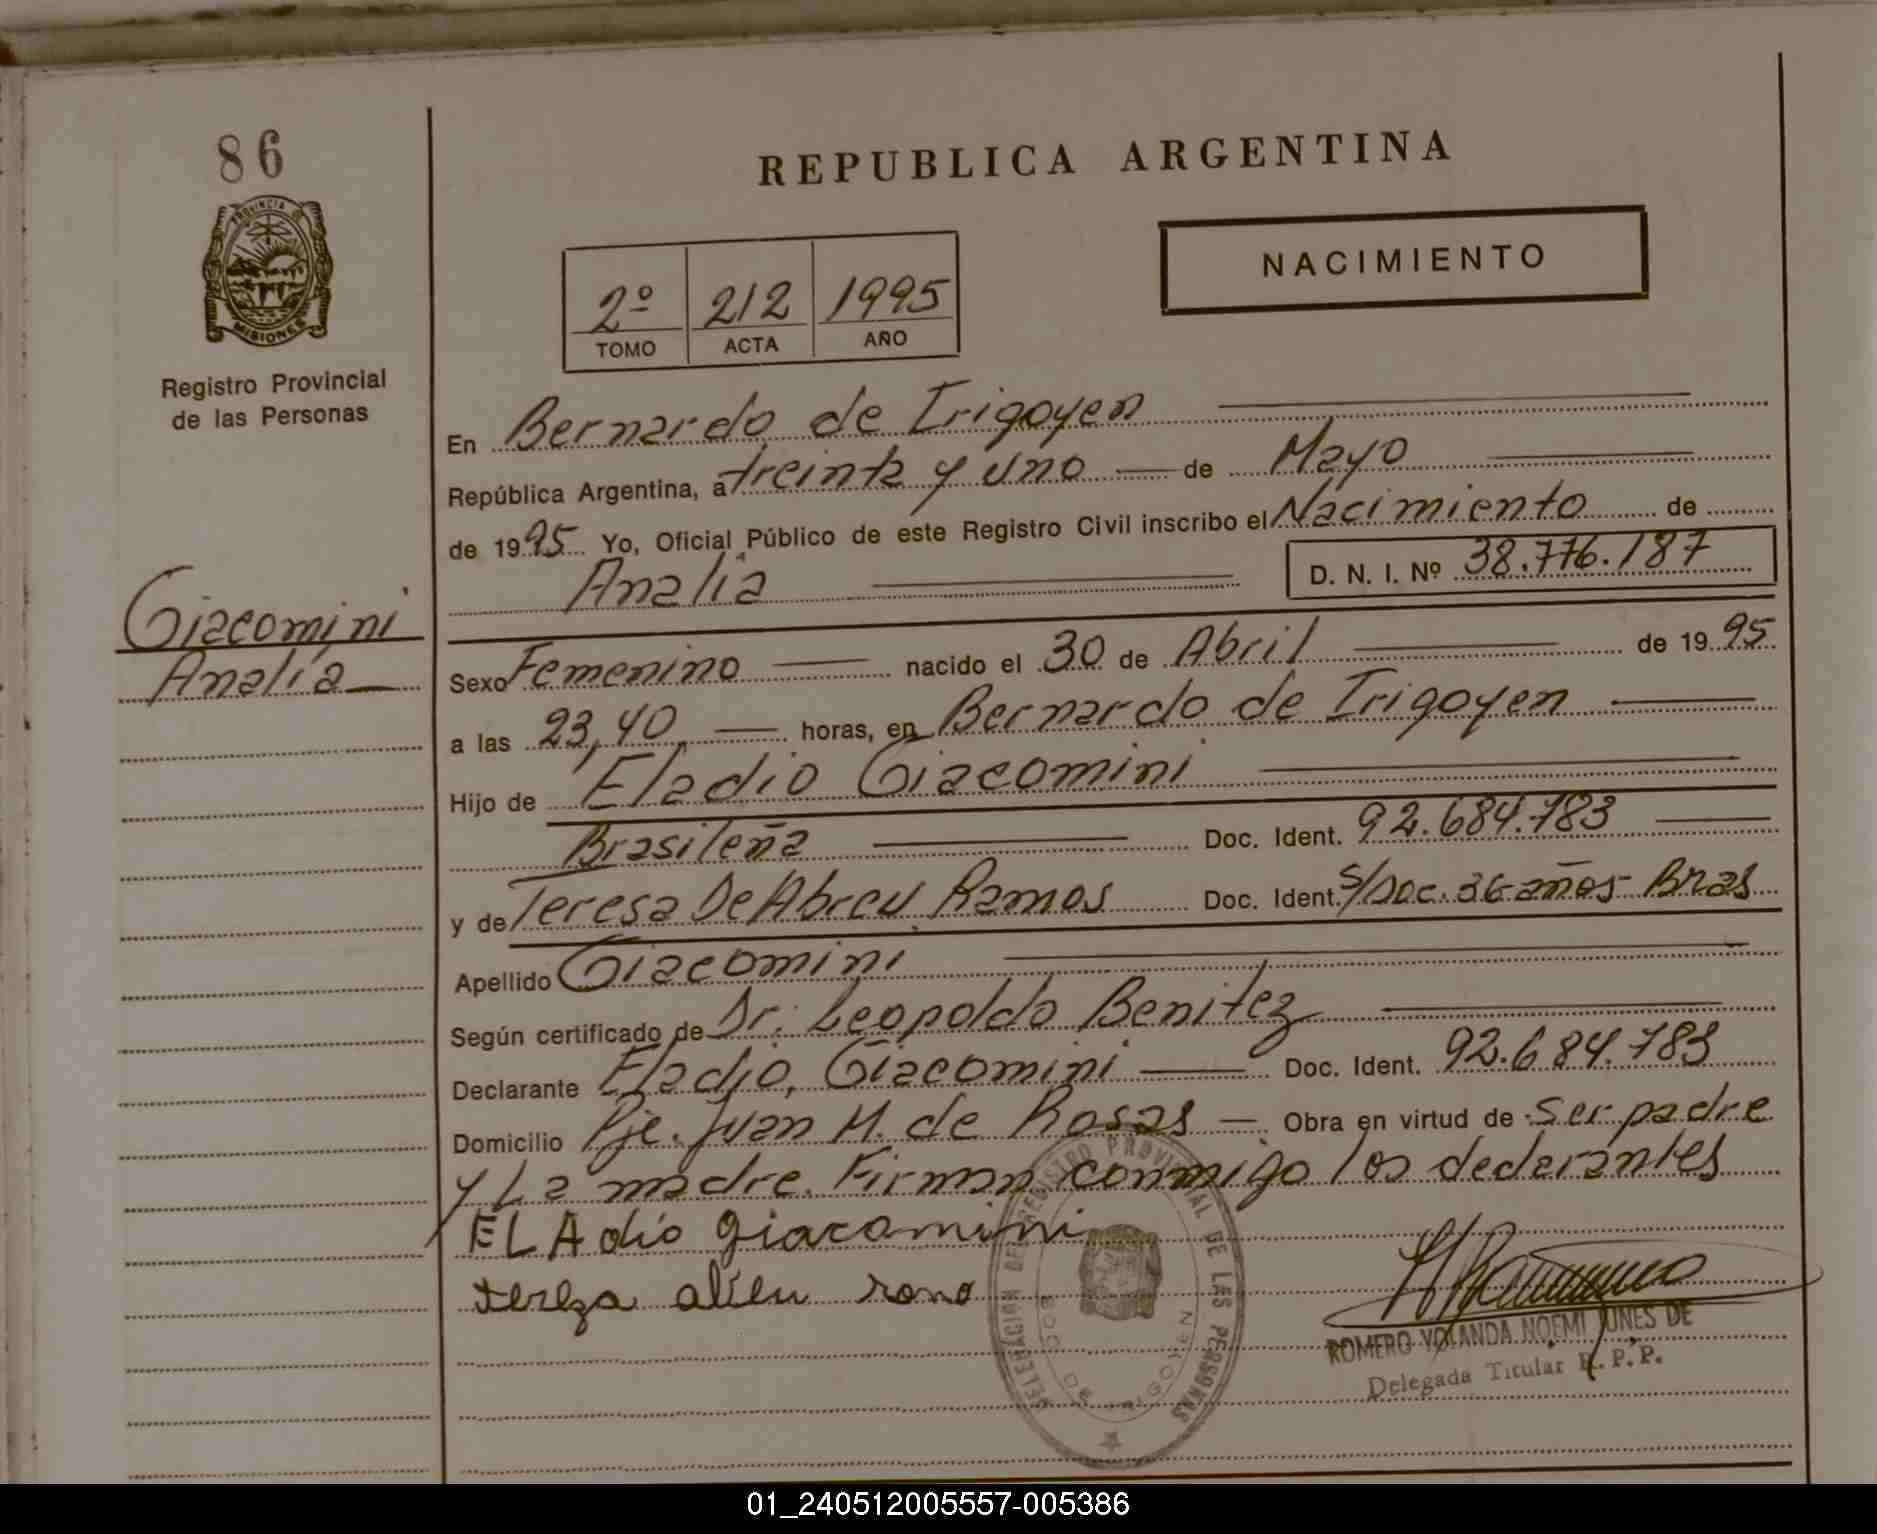 86
PROVINCIA DE
MISIONES
Registro Provincial
de las Personas
Giacomini
Analía
REPUBLICA ARGENTINA
NACIMIENTO
2º 212 1995
TOMO ACTA AÑO
En Bernardo de Irigoyen
República Argentina, a treinta y uno de Mayo
de 1995 Yo, Oficial Público de este Registro Civil inscribo el Nacimiento de
Analía D. N. I. Nº 38.776.187
Sexo Femenino nacido el 30 de Abril de 1995
a las 23,40 horas, en Bernardo de Irigoyen
Hijo de Eladio Giacomini
Brasileña Doc. Ident. 92.684.783
y de Teresa De Abreu Ramos Doc. Ident. S/Doc. 36 años Bras
Apellido Giacomini
Según certificado de Dr. Leopoldo Benitez
Declarante Eladio Giacomini Doc. Ident. 92.684.783
Domicilio Pje. Juan M. de Rosas Obra en virtud de ser padre
y La madre. Firman conmigo los declarantes
ELAdio giacomini
tereza abreu ramo
DELEGACION DEL REGISTRO PROVINCIAL DE LAS PERSONAS
BDO. DE IRIGOYEN
ROMERO YOLANDA NOEMI JUNES DE
Delegada Titular R.P.P.
01_240512005557-005386